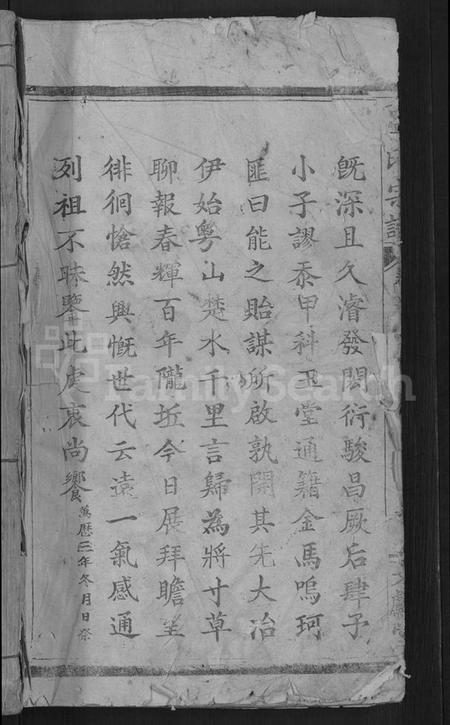 既深且久濬發閎衍駿昌厥后肆予
小子謬忝甲科玉堂通籍金馬鳴珂
匪曰能之貽謀所啟孰開其先大冶
伊始粤山楚水千里言歸為將寸草
聊報春輝百年隴坵今日展拜瞻坐
徘徊愴然興慨世代云遠一氣感通
列祖不昧鑒此虔衷尚饗
萬曆三年冬月日祭
氏宗譜
FamilySearch